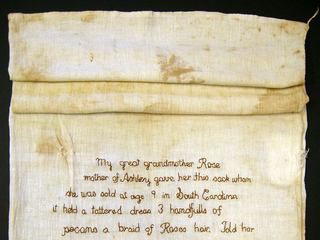 My great grandmother Rose
mother of Ashley gave her this sack when
she was sold at age 9 in South Carolina
it held a tattered dress 3 handfulls of
pecans a braid of Roses hair. Told her